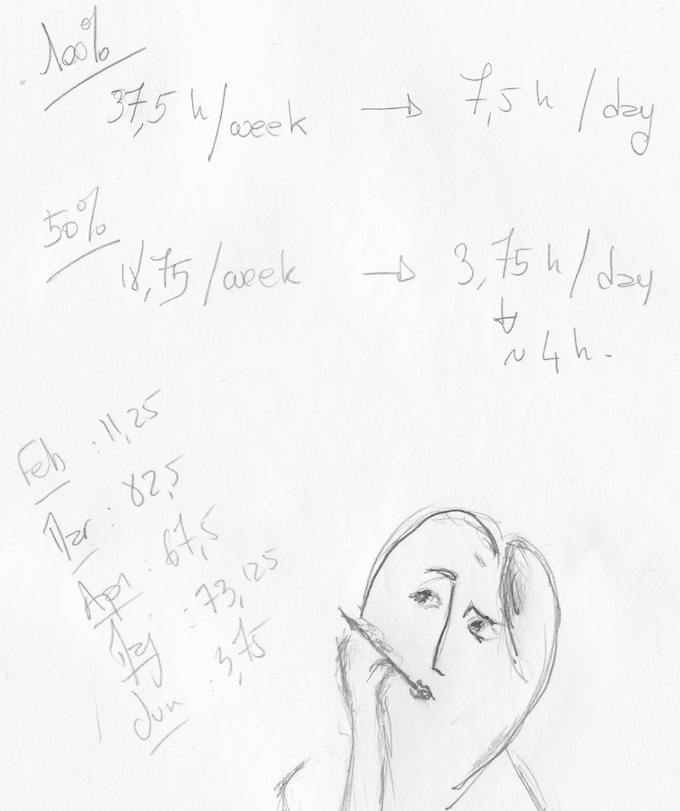 100%
37,5 h/week → 7,5 h/day
50%
18,75/week → 3,75 h/day
~ 4 h.
Feb : 11,25
Mar : 82,5
Apr : 67,5
Maj : 73,125
Jun : 3,75